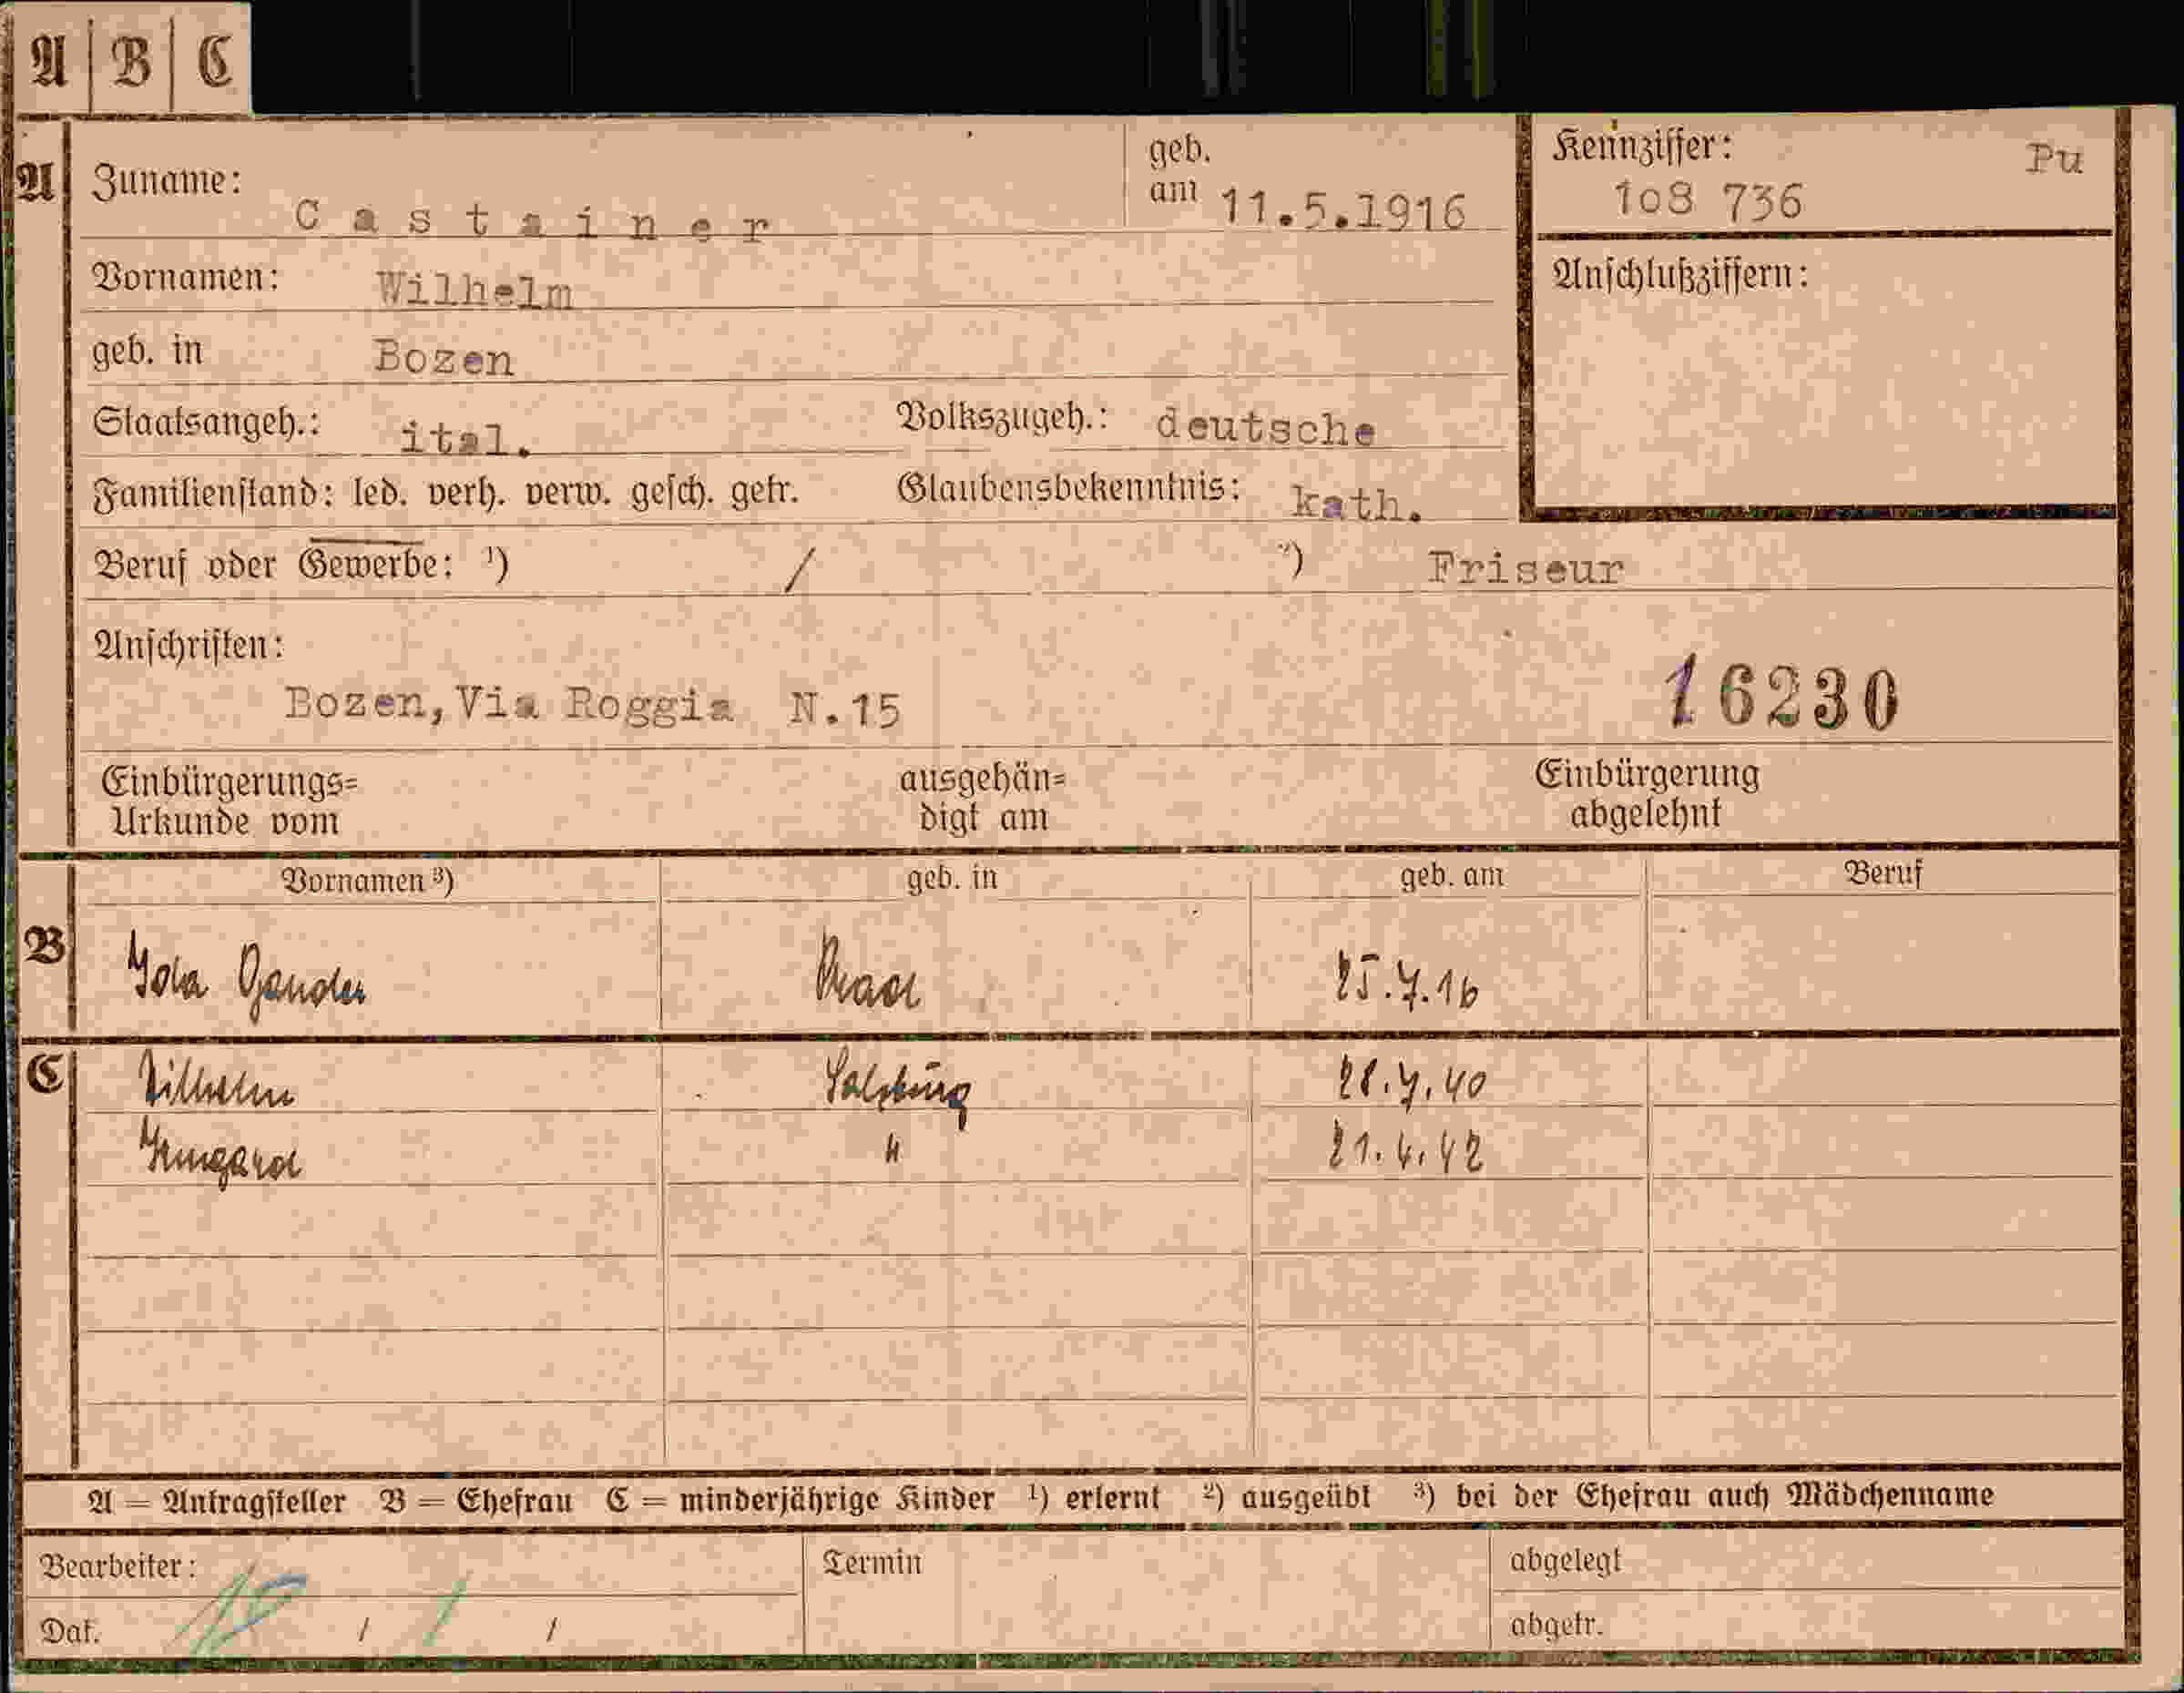 A | B | C
A Zuname: Castainer geb. am 11.5.1916 Kennziffer: Pu
108 736
Vornamen: Wilhelm Anschlußziffern:
geb. in Bozen
Staatsangeh.: ital. Volkszugeh.: deutsche
Familienstand: led. verh. verw. gesch. getr. Glaubensbekenntnis: kath.
Beruf oder Gewerbe: ¹) / ²) Friseur
Anschriften:
Bozen, Via Roggia N.15 16230
Einbürgerungs= ausgehän= Einbürgerung
Urkunde vom digt am abgelehnt
Vornamen ³) geb. in geb. am Beruf
B Ida Gander Prad 25.7.16
C Wilhelm Salzburg 28.7.40
Irmgard " 21.4.42
A = Antragsteller B = Ehefrau C = minderjährige Kinder ¹) erlernt ²) ausgeübt ³) bei der Ehefrau auch Mädchenname
Bearbeiter: Termin abgelegt
Dat. / / abgetr.